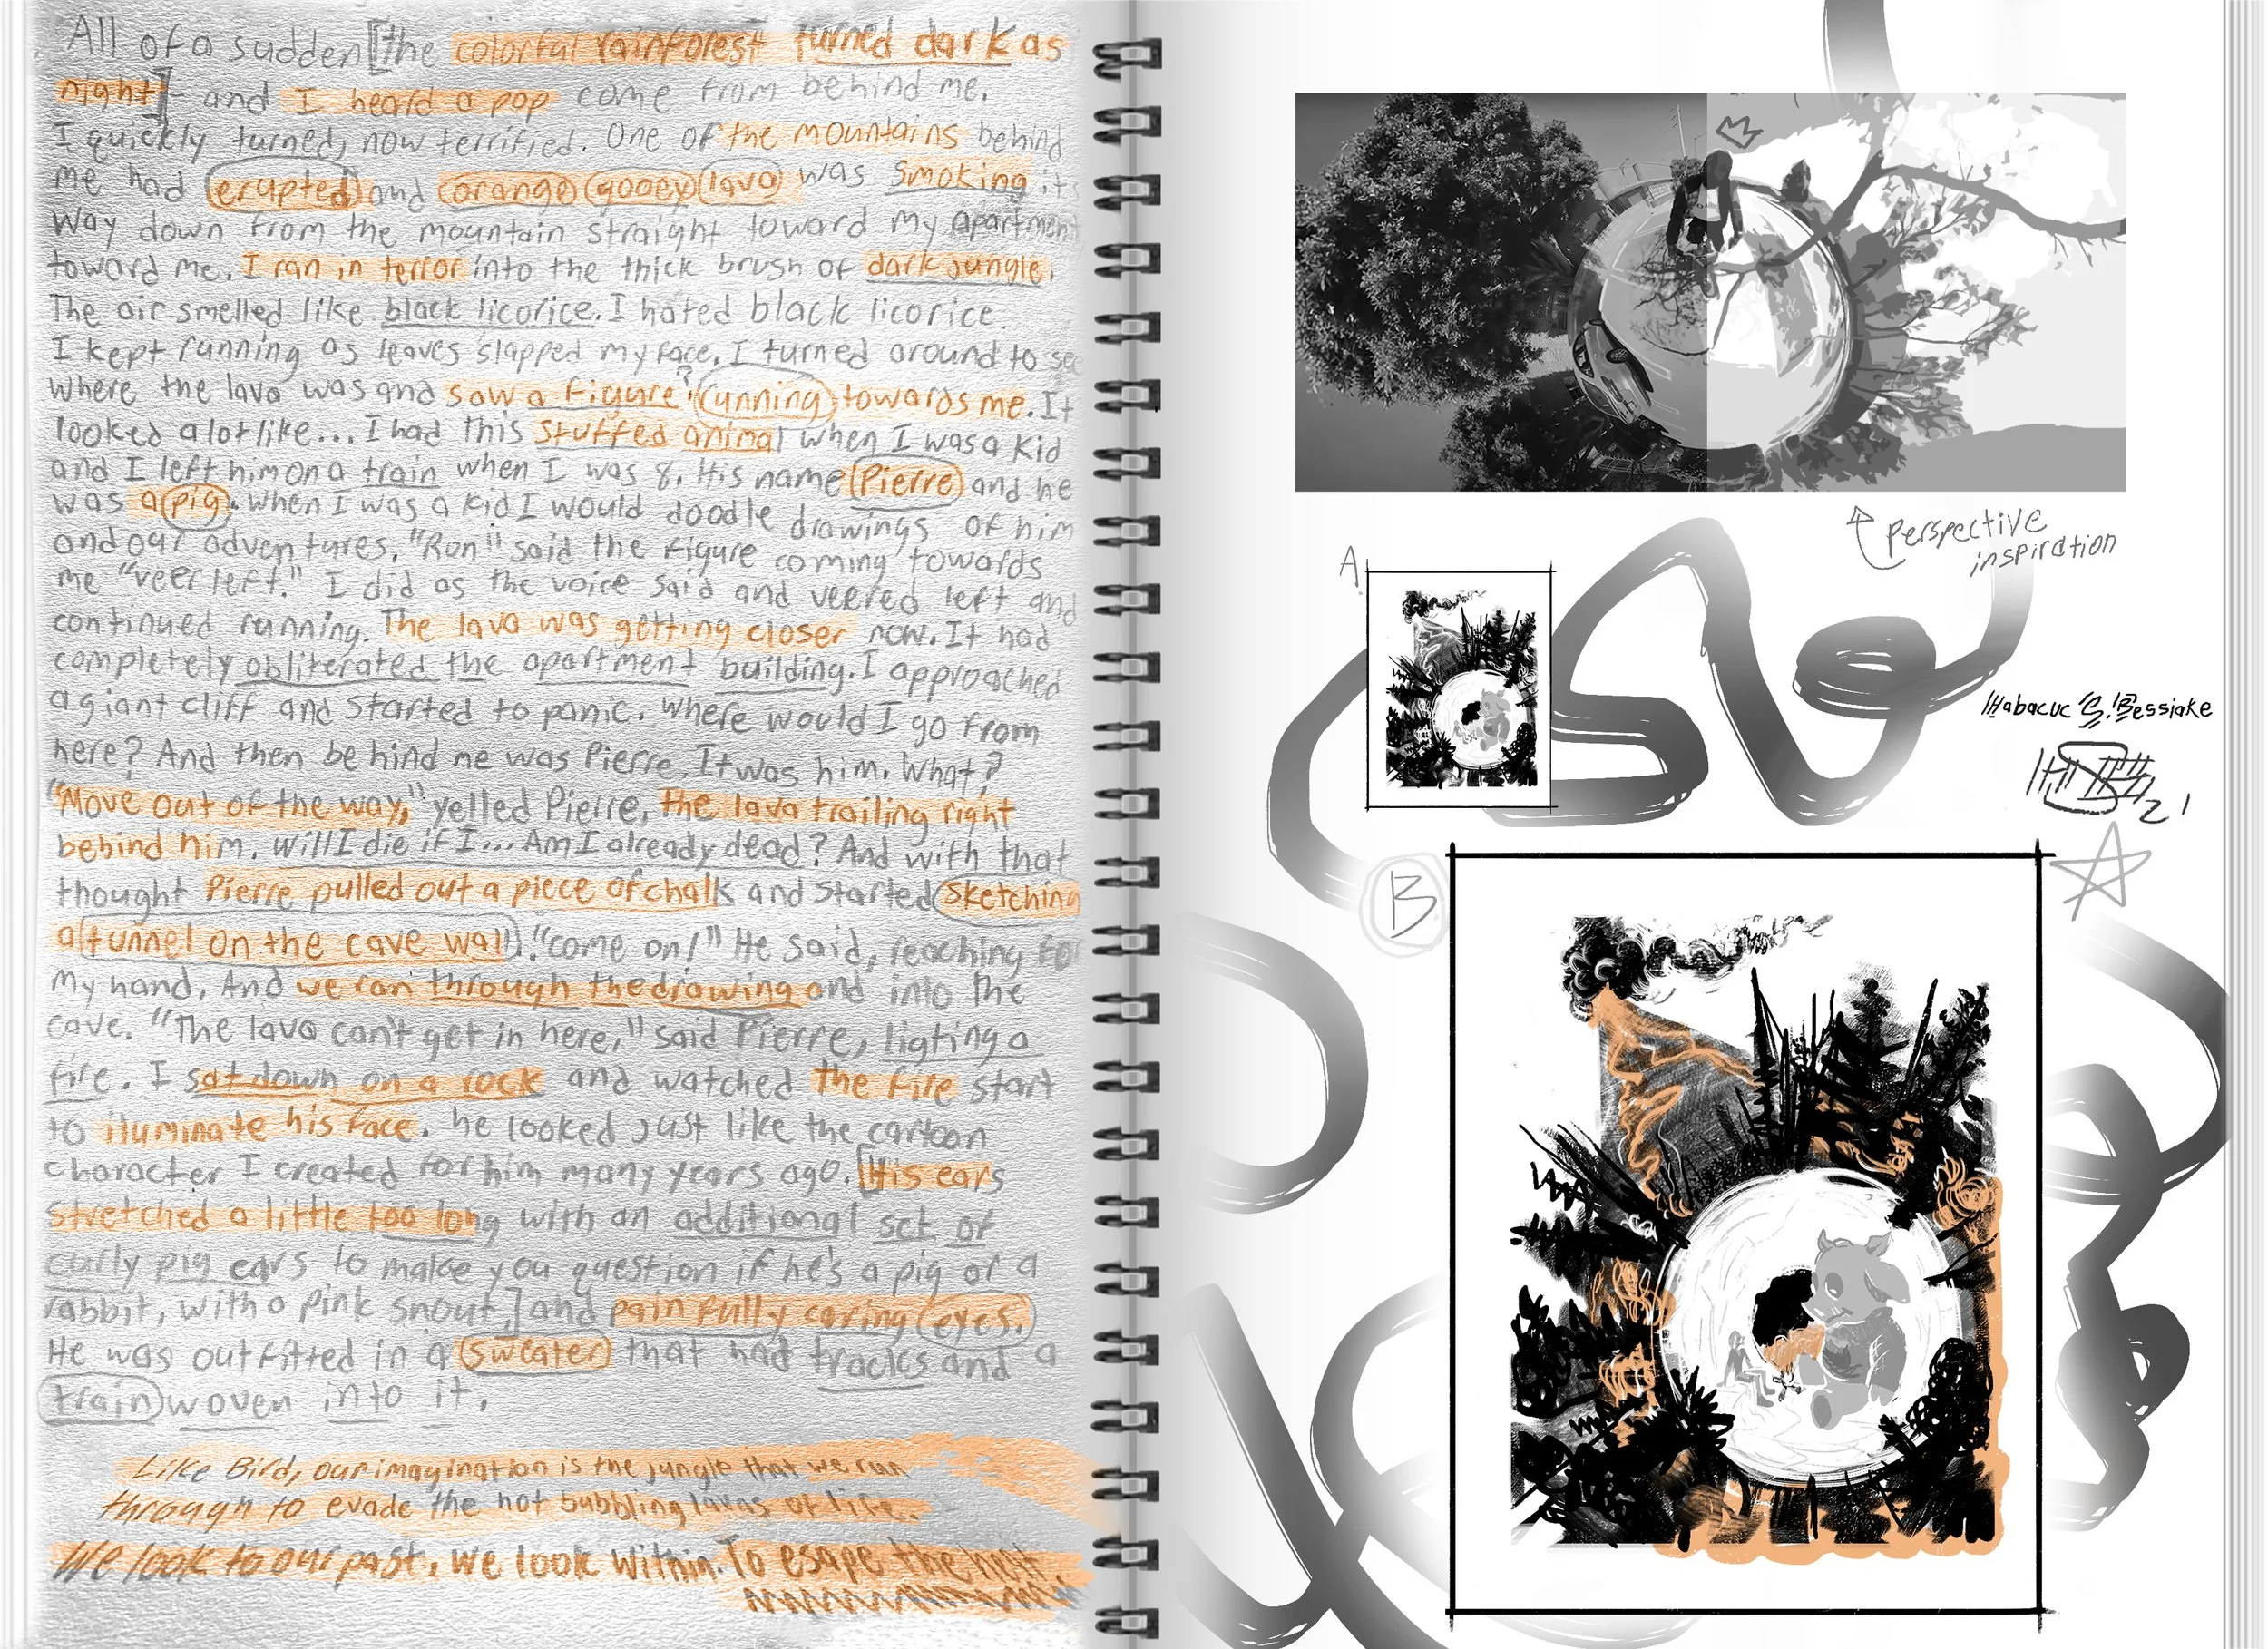 All of a sudden [the colorful rainforest turned dark as
night] - and I heard a pop come from behind me.
I quickly turned, now terrified. One of the mountains behind
me had erupted and orange gooey lava was smoking its
way down from the mountain straight toward my apartment
toward me. I ran in terror into the thick brush of dark jungle.
The air smelled like black licorice. I hated black licorice.
I kept running as leaves slapped my face. I turned around to see
where the lava was and saw a figure ? running towards me. It
looked a lot like... I had this stuffed animal when I was a kid
and I left him on a train when I was 8. His name Pierre and he
was a pig. When I was a kid I would doodle drawings of him
and our adventures. "Run" said the figure coming towards
me "veer left." I did as the voice said and veered left and
continued running. The lava was getting closer now. It had
completely obliterated the apartment building. I approached
a giant cliff and started to panic. Where would I go from
here? And then behind me was Pierre. It was him. What?
"Move out of the way," yelled Pierre, the lava trailing right
behind him. Will I die if I... Am I already dead? And with that
thought Pierre pulled out a piece of chalk and started sketching
a tunnel on the cave wall. "come on!" He said, reaching for
my hand, And we ran through the drawing and into the
cave. "The lava can't get in here," said Pierre, ligting a
fire. I sat down on a rock and watched the fire start
to iluminate his face. he looked just like the cartoon
character I created for him many years ago. [His ears
stretched a little too long with an additional set of
curly pig ears to make you question if he's a pig or a
rabbit, with a pink snout,] and painfully caring eyes.
He was outfitted in a sweater that had tracks and a
train woven into it.
Like Bird, our imagination is the jungle that we ran
through to evade the hot bubbling lavas of life.
We look to our past, we look within. To escape the heat.
perspective
inspiration
A
Habacuc S. Bessiake
21
B